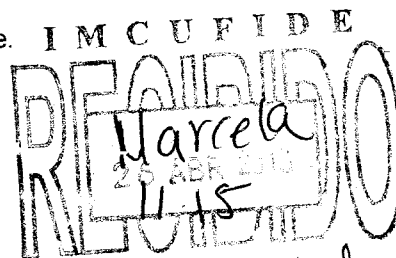 e. IMCUFIDE
RECIBIDO
Marcela
26 ABR
11:15